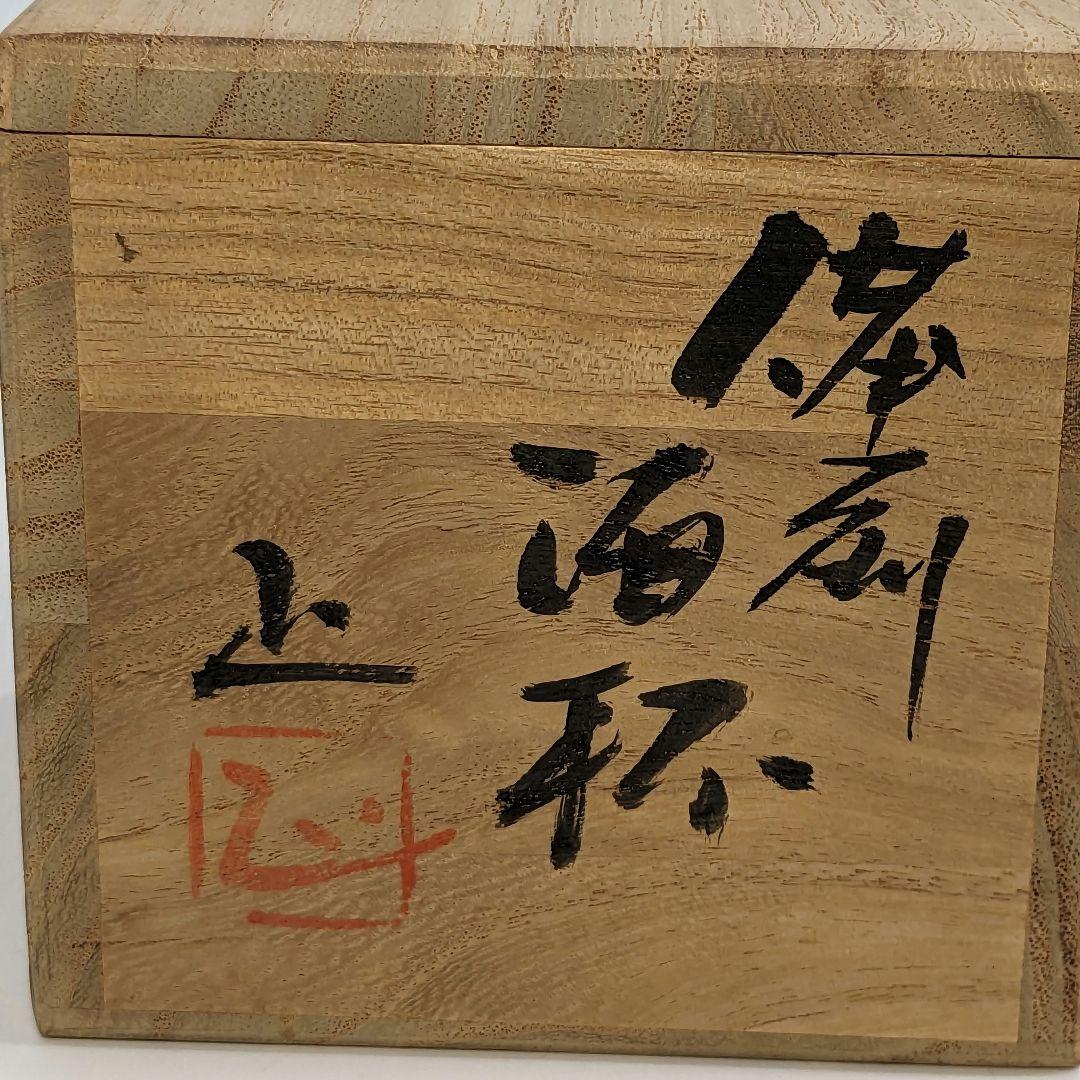 備前
酒杯